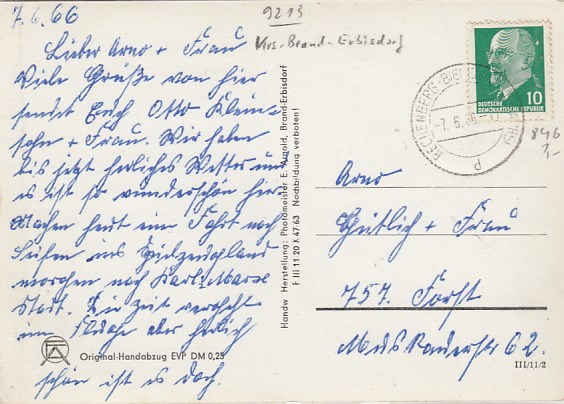 7.6.66
9213
Krs. Brand-Erbisdorf
Lieber Arno + Frau
Viele Grüße von hier
sendet Euch Otto Klein-
sohn + Frau. Wir haben
bis jetzt herliches Wetter und
es ist so wunderschön hier
Machen heut ein Fahrt nach
Seifen ins Spielzeugland
morgen nach Karl-Marx
Stadt. Die Zeit vergeht
im Fluge aber herlich
schön ist es doch.
Original-Handabzug EVP DM 0,25
Handw Herstellung: Photomeister E. Arnold, Brand-Erbisdorf
F III 11 20 K 47 63 Nachbildung verboten!
10
DEUTSCHE
DEMOKRATISCHE REPUBLIK
RECHENBERG-BIENENMÜHLE
-7.6.66
P
846
Arno
Gütlich + Frau
757. Forst
Muskauerstr 62.
III/11/2